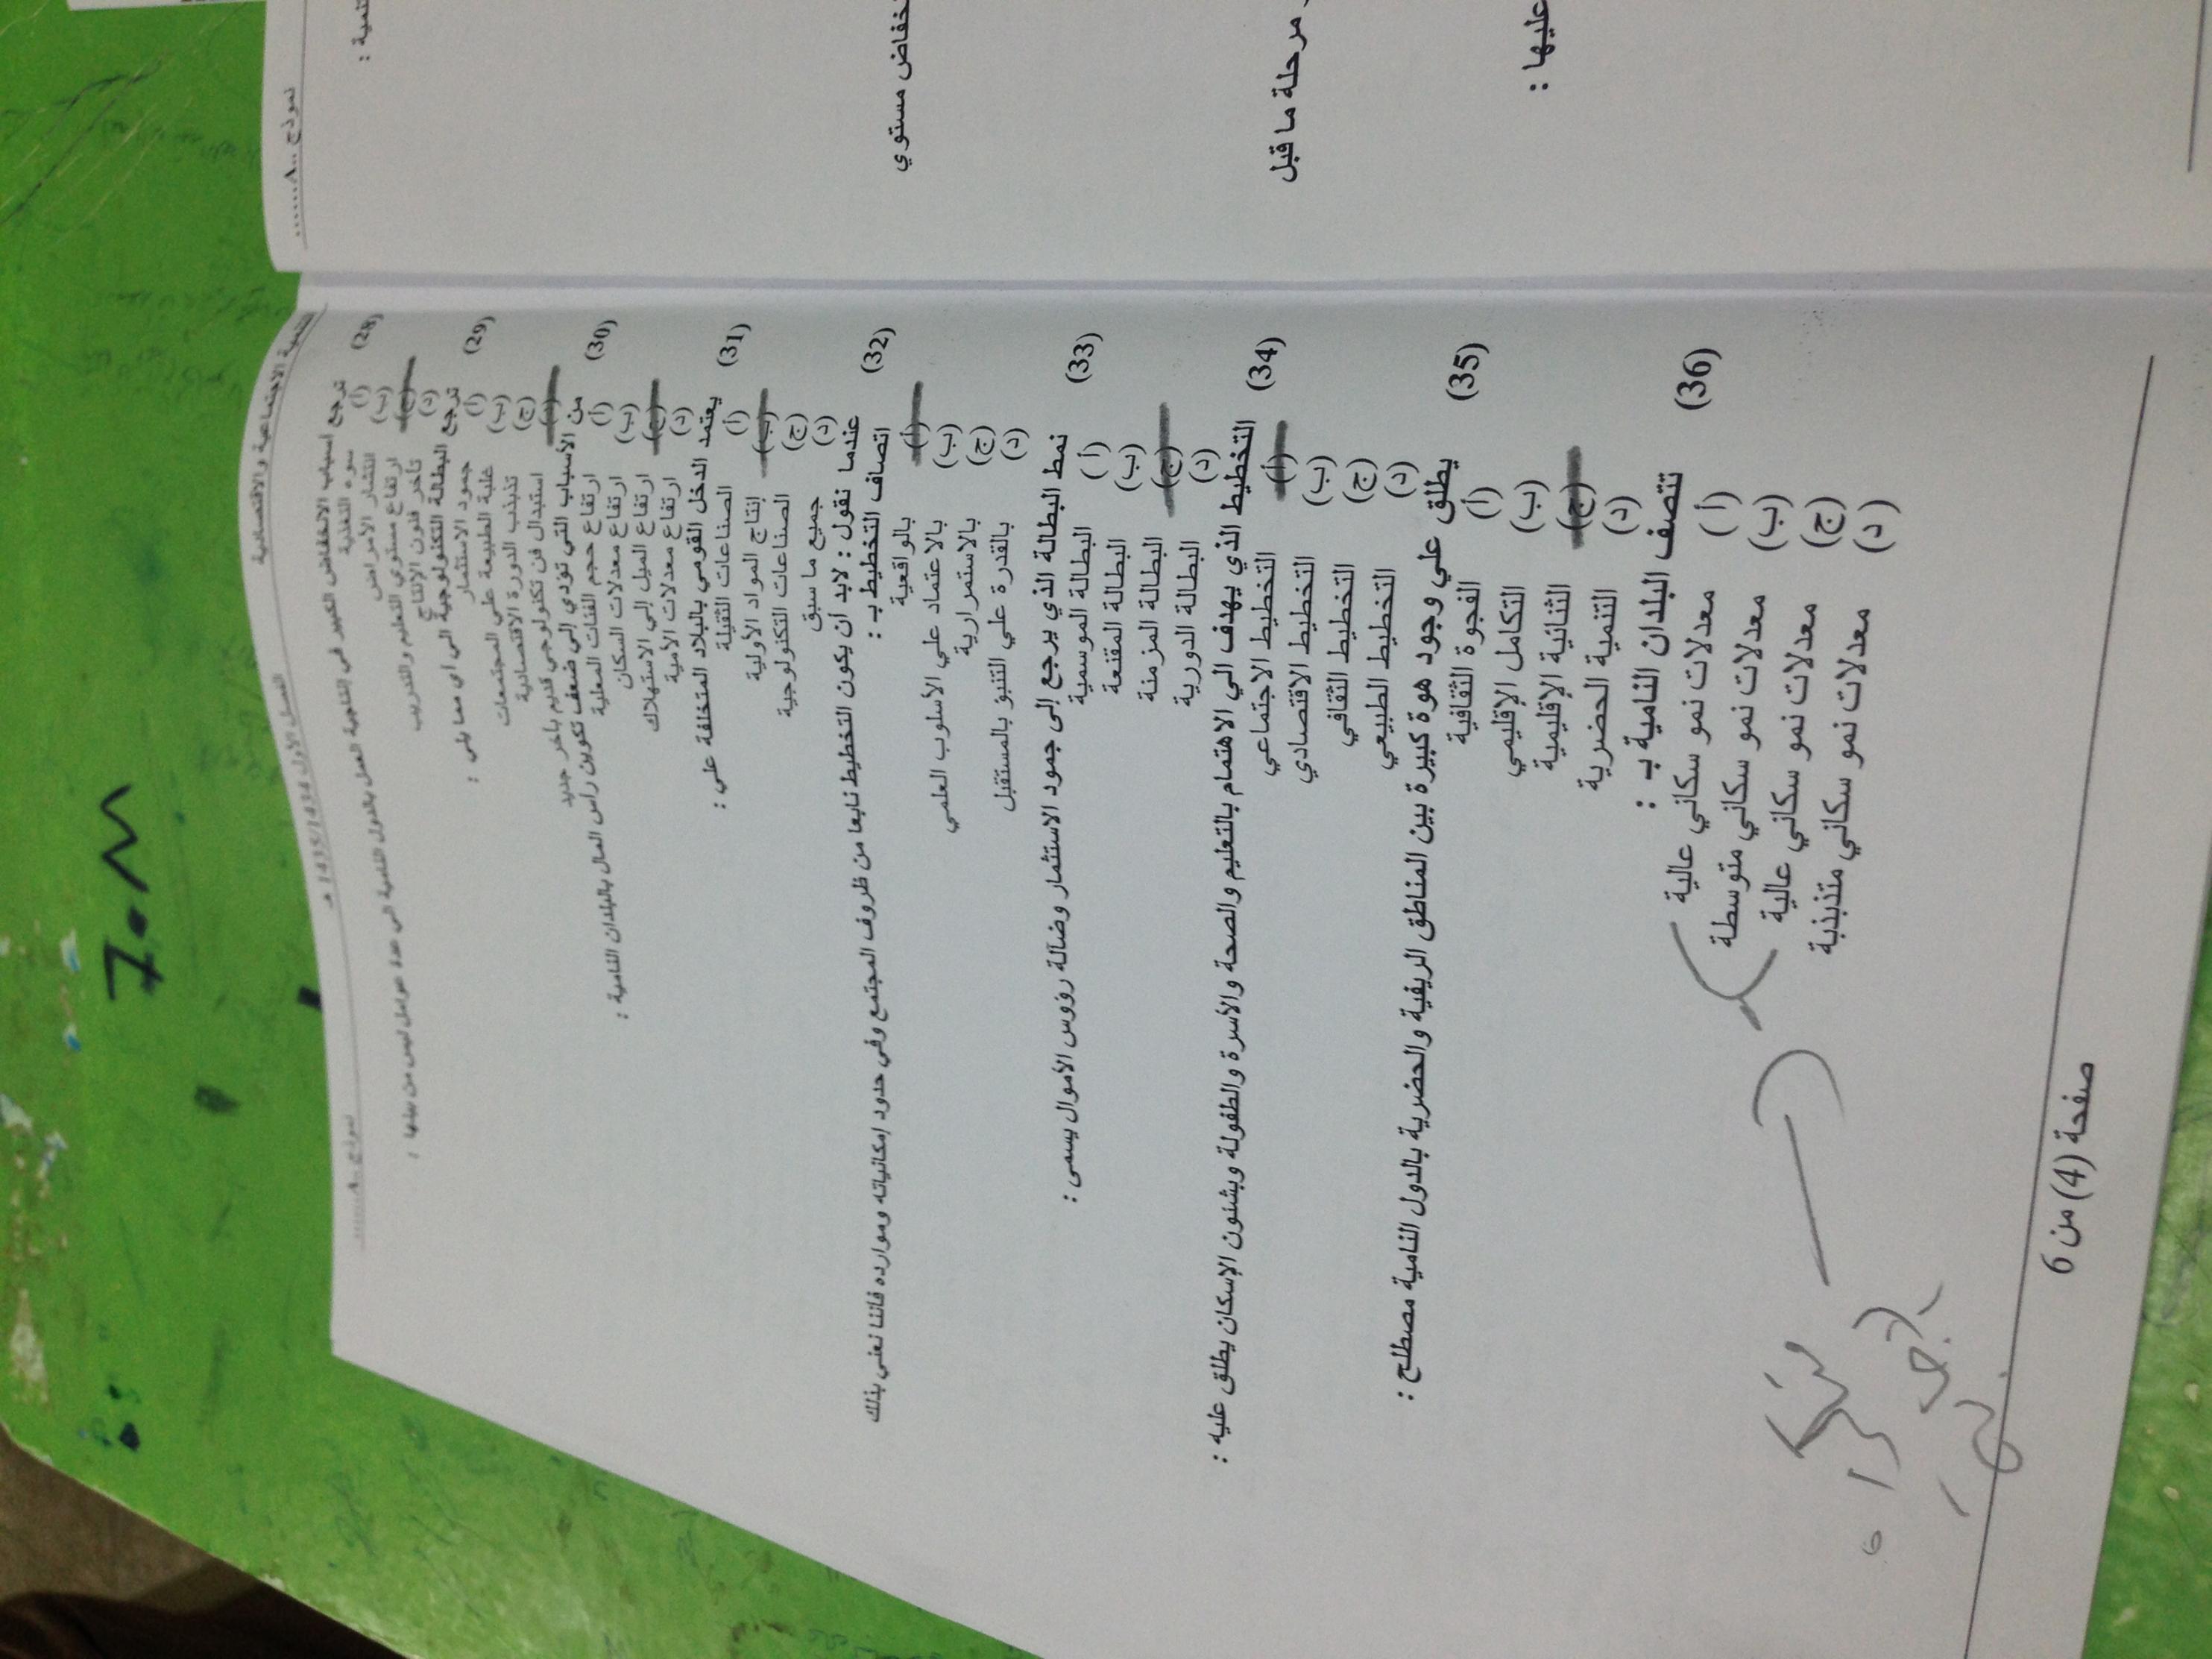 التنمية الاجتماعية والاقتصادية
الفصل الأول 1435/1434 هـ
نموذج A
(28) ترجع أسباب الانخفاض الكبير في إنتاجية العمل بالدول النامية الى عدة عوامل ليس من بينها :
(أ) سوء التغذية
(ب) انتشار الأمراض
(ج) ارتفاع مستوي التعليم والتدريب
(د) تأخر فنون الإنتاج
(29) ترجع البطالة التكنولوجية الى أي مما يلي :
(أ) جمود الاستثمار
(ب) غلبة الطبيعة علي المجتمعات
(ج) تذبذب الدورة الاقتصادية
(د) استبدال فن تكنولوجي قديم بآخر جديد
(30) من الأسباب التي تؤدي إلى ضعف تكوين رأس المال بالبلدان النامية :
(أ) ارتفاع حجم الفئات المعلية
(ب) ارتفاع معدلات السكان
(ج) ارتفاع الميل إلى الاستهلاك
(د) ارتفاع معدلات الأمية
(31) يعتمد الدخل القومي بالبلاد المتخلفة علي :
(أ) الصناعات الثقيلة
(ب) إنتاج المواد الأولية
(ج) الصناعات التكنولوجية
(د) جميع ما سبق
(32) عندما نقول : لابد أن يكون التخطيط نابعا من ظروف المجتمع وفي حدود إمكانياته وموارده فاننا نعني بذلك
اتصاف التخطيط بـ :
(أ) بالواقعية
(ب) بالاعتماد علي الأسلوب العلمي
(ج) بالاستمرارية
(د) بالقدرة علي التنبؤ بالمستقبل
(33) نمط البطالة الذي يرجع إلى جمود الاستثمار وضآلة رؤوس الأموال يسمى :
(أ) البطالة الموسمية
(ب) البطالة المقنعة
(ج) البطالة المزمنة
(د) البطالة الدورية
(34) التخطيط الذي يهدف الي الاهتمام بالتعليم والصحة والأسرة والطفولة وبشئون الإسكان يطلق عليه :
(أ) التخطيط الاجتماعي
(ب) التخطيط الاقتصادي
(ج) التخطيط الثقافي
(د) التخطيط الطبيعي
(35) يطلق علي وجود هوة كبيرة بين المناطق الريفية والحضرية بالدول النامية مصطلح :
(أ) الفجوة الثقافية
(ب) التكامل الإقليمي
(ج) الثنائية الإقليمية
(د) التنمية الحضرية
(36) تتصف البلدان النامية بـ :
(أ) معدلات نمو سكاني عالية
(ب) معدلات نمو سكاني متوسطة
(ج) معدلات نمو سكاني عالية
(د) معدلات نمو سكاني متذبذبة
صفحة (4) من 6
نموذج A
نمية :
خفاض مستوي
مرحلة ما قبل
عليها :